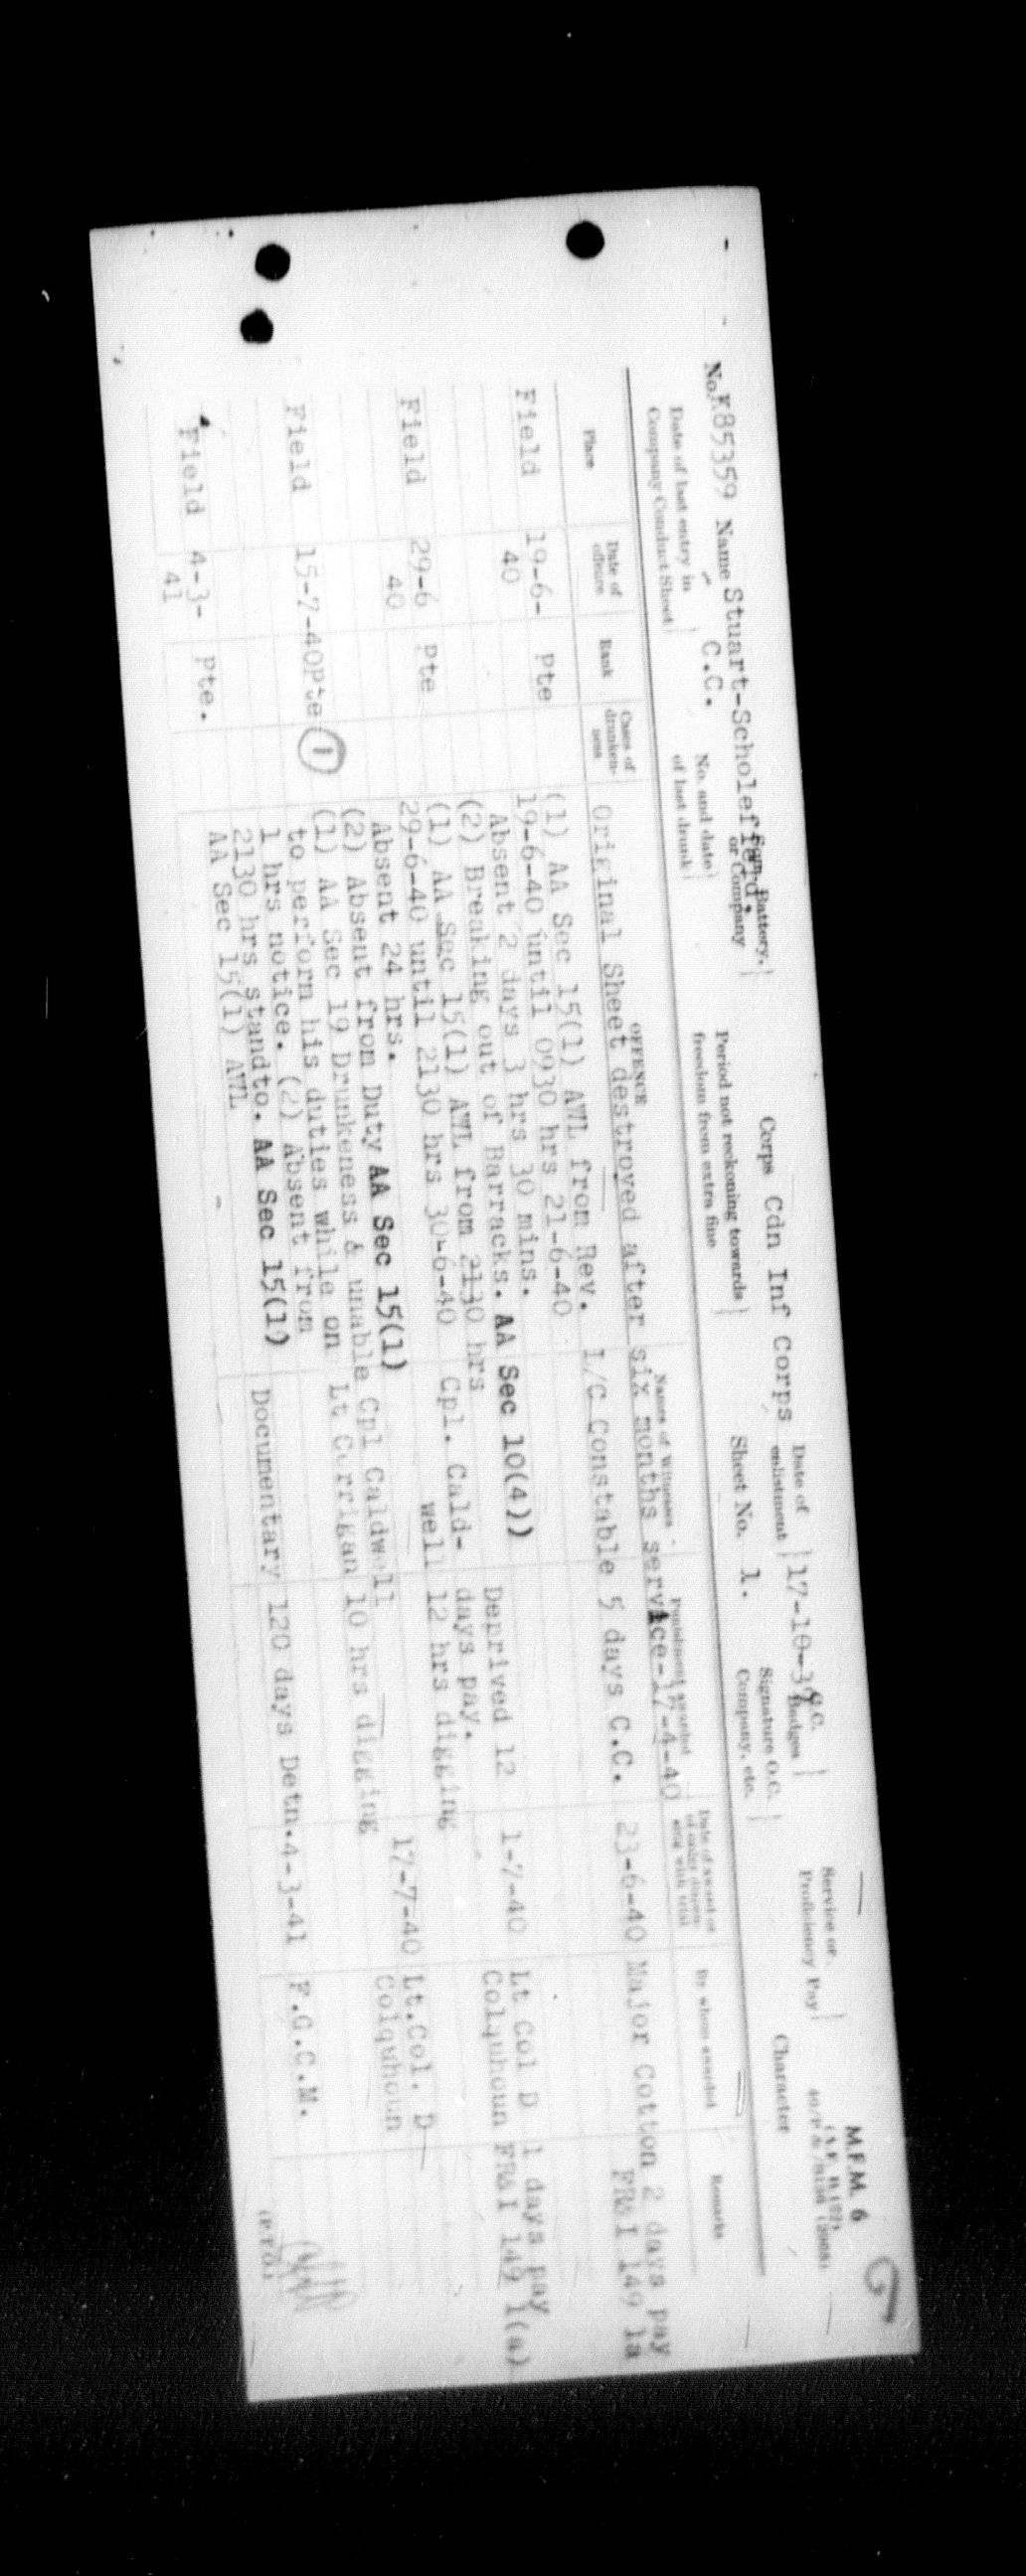 M.F.M. 6
No. K85359 Name Stuart-Scholefield, C.C. Sqn., Battery, or Company Corps Cdn Inf Corps Date of enlistment 17-10-39 G.C. Badges Service or Proficiency Pay
Date of last entry in Company Conduct Sheet No. and date of last drunk Period not reckoning towards freedom from extra fine Sheet No. 1. Signature O.C. Company, etc. Character
Place Date of offence Rank Cases of drunkenness OFFENCE Names of Witnesses Punishment awarded Date of award or of order dispensing with trial By whom awarded Remarks
Original Sheet destroyed after six months service-17-4-40
Field 19-6-40 Pte (1) AA Sec 15(1) AWL from Rev. L/C Constable 5 days C.C. 23-6-40 Major Cotton 2 days pay
19-6-40 until 0930 hrs 21-6-40 FR&I 149 1a
Absent 2 days 3 hrs 30 mins.
(2) Breaking out of Barracks. AA Sec 10(4))
Field 29-6 40 Pte (1) AA Sec 15(1) AWL from 2130 hrs Cpl. Caldwell Deprived 12 days pay. 1-7-40 Lt Col D Colquhoun 1 days pay
29-6-40 until 2130 hrs 30-6-40 12 hrs digging FR&I 149 1(a)
Absent 24 hrs.
(2) Absent from Duty AA Sec 15(1)
Field 15-7-40 Pte 1 (1) AA Sec 19 Drunkeness & unable Cpl Caldwell 17-7-40 Lt.Col. D Colquhoun
to perform his duties while on Lt Corrigan 10 hrs digging
1 hrs notice. (2) Absent from
2130 hrs standto. AA Sec 15(1)
Field 4-3-41 Pte. AA Sec 15(1) AWL Documentary 120 days Detn. 4-3-41 F.G.C.M.
(P.T.O.)